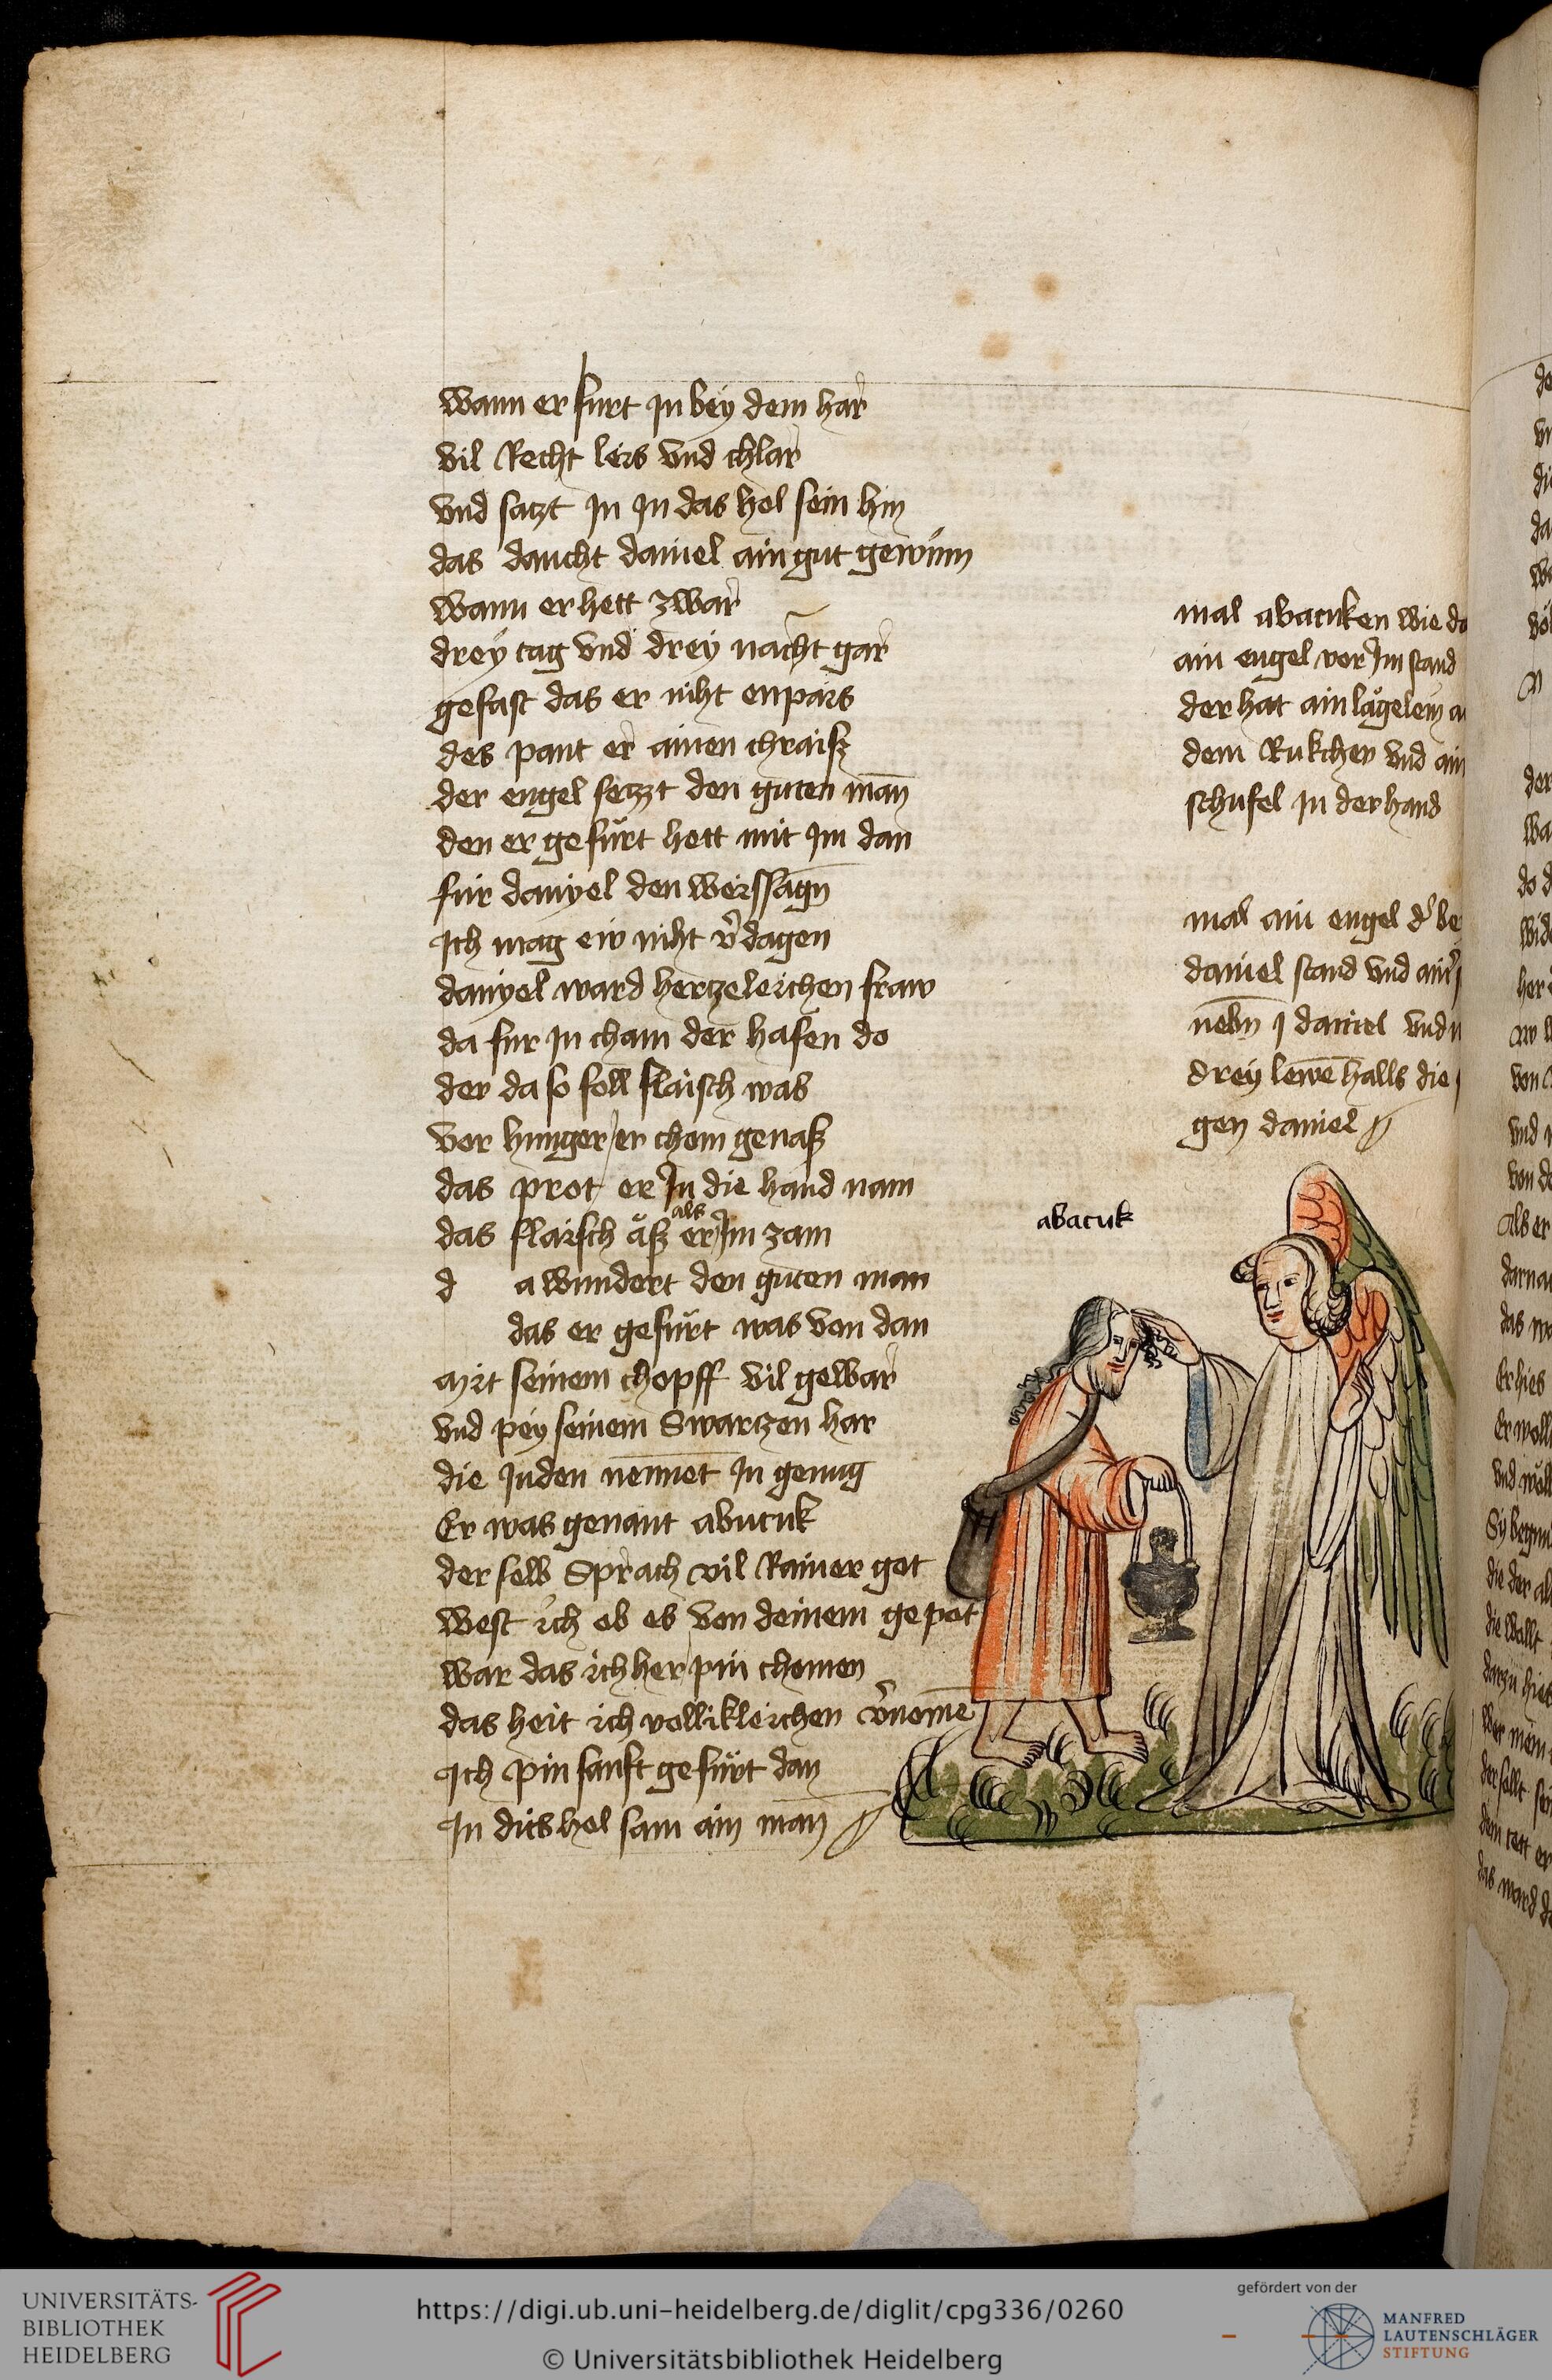 wann er furt in bey dem har
vil Recht leis vnd chlar
vnd satzt In In das hol sein hin
das daucht daniel ain gut gewinn
wann er hett zwar
drey tag vnd drey nacht gar
gefast das er niht enpais
des pant er ainen chraiß
der engel setzt den guten man̄
den er gefürt hett mit Im dan
für danyel den weissagn̄
Ich mag eiv niht v̉dagen
danyel ward hertzeleichen fraw
da für In cham der hafen do
der da so foll flaisch was
vor hunger er chom genaß
das prot er In die hand nam
das flaisch äß er als Im zam
d a wundert den guten man
das er gefürt was von dan
Mit seinem schopff vil gewar
vnd pey seinem Swartzen har
die Juden nennet In genug
Er was genant abucuk
der selb Sprach vil Rainer got
west ich ob es von deinem gepot
war das ich her pin chomen
das heit ich vollikleichen v̉nomē
Ich pin sanft gefürt dan
In dits hol sam ain man̄
mal abacuken wie do
ain engel vor Im stand
der hat ain lägelein
dem Rukchen vnd ain
schufel In der hand
mal ain engel d' be
daniel stand vnd
nebn̄ daniel vnd
drey lewē halls die
gen daniel
abacuk
UNIVERSITÄTS-
BIBLIOTHEK
HEIDELBERG
https://digi.ub.uni-heidelberg.de/diglit/cpg336/0260
© Universitätsbibliothek Heidelberg
gefördert von der
MANFRED
LAUTENSCHLÄGER
STIFTUNG